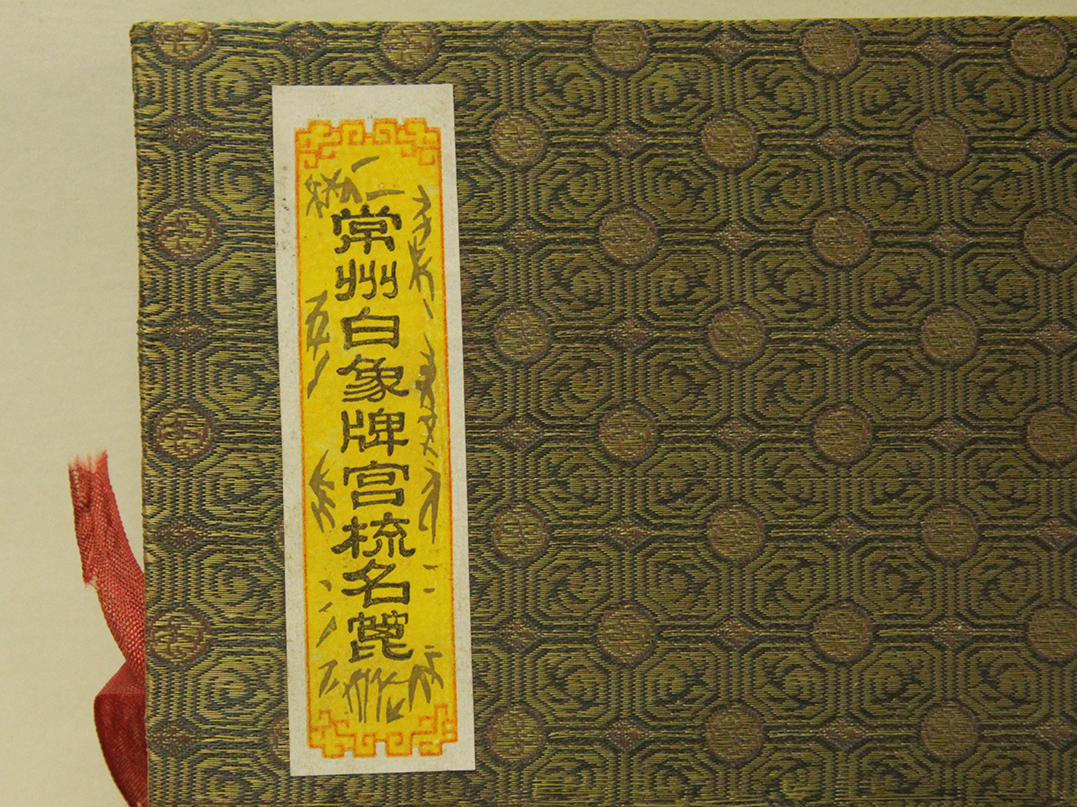 常州白象牌宫梳名篦